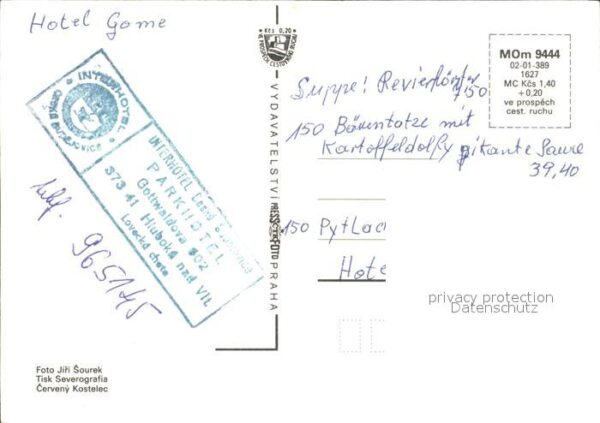 Hotel Game
Kčs 0,20
INTERHOTEL
INTERHOTEL České Budějovice
PARKHOTEL
Gottwaldova 602
373 41 Hluboká nad Vlt.
Lovecká chata
965145
VYDAVATELSTVÍ PRESSFOTO PRAHA
MOm 9444
02-01-389
1627
MC Kčs 1,40
+0,20
ve prospěch
cest. ruchu
Suppe!
150 Bärentatze mit
Kartoffeldolfy pikante Saure
39,40
150 Pytlac
Hote
privacy protection
Datenschutz
Foto Jiří Šourek
Tisk Severografia
Červený Kostelec